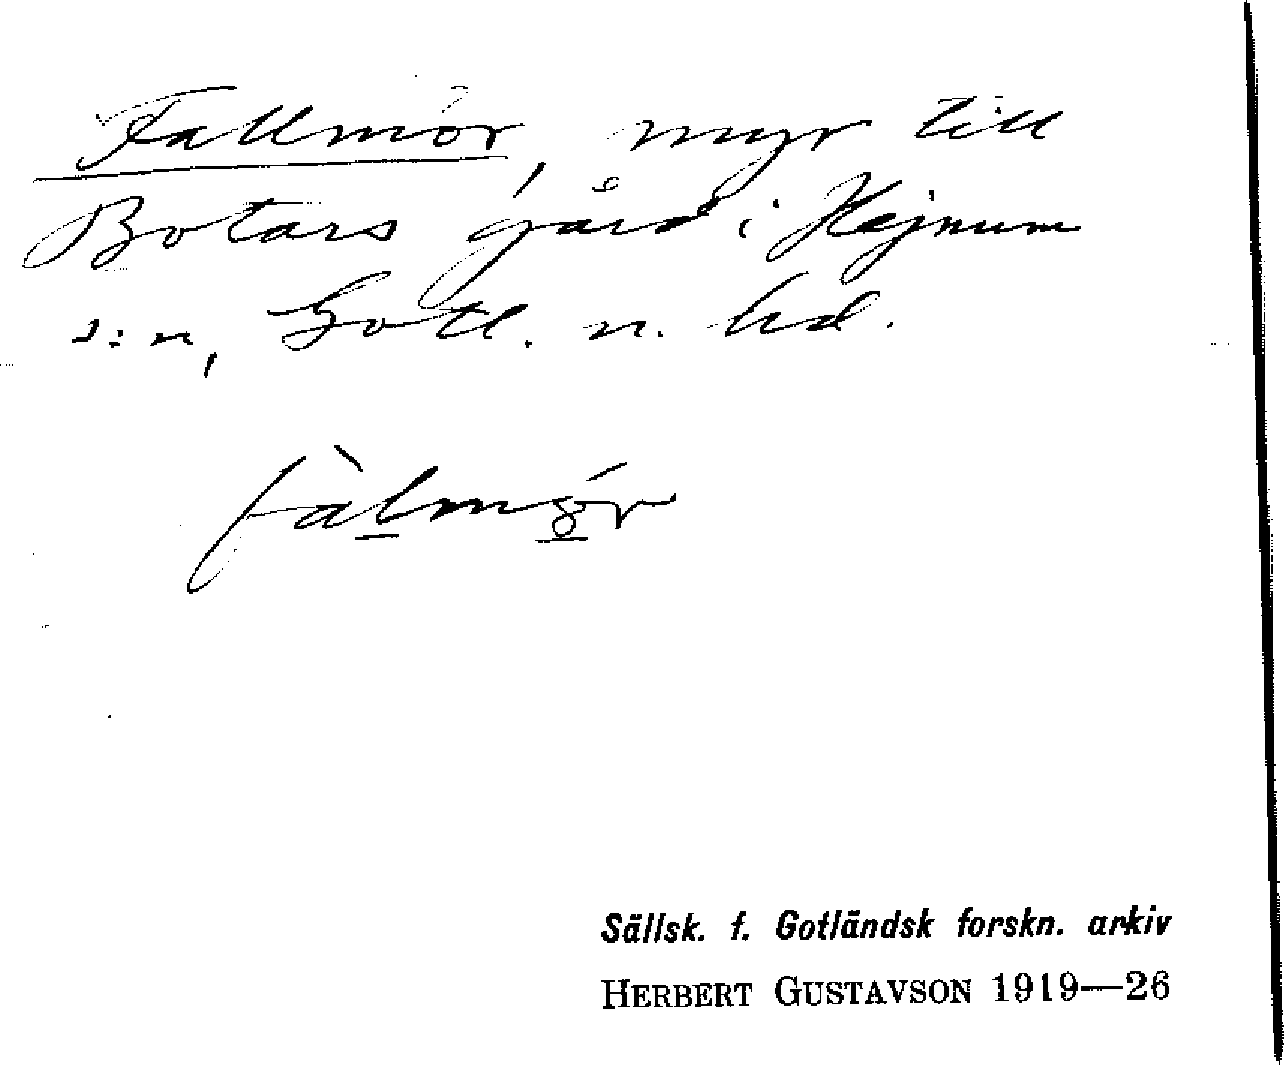 Fallmör, myr till
Botars gård i Hejnum
s:n, Gotl. n. hd.
fàlmǫ́r
Sällsk. f. Gotländsk forskn. arkiv
HERBERT GUSTAVSON 1919—26